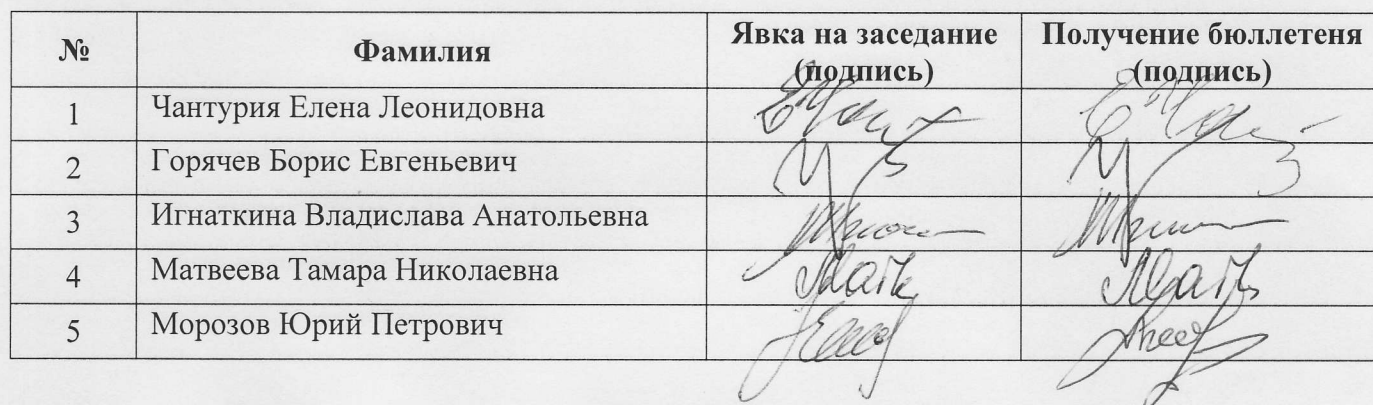 № Фамилия Явка на заседание Получение бюллетеня
(подпись) (подпись)
1 Чантурия Елена Леонидовна
2 Горячев Борис Евгеньевич
3 Игнаткина Владислава Анатольевна
4 Матвеева Тамара Николаевна
5 Морозов Юрий Петрович